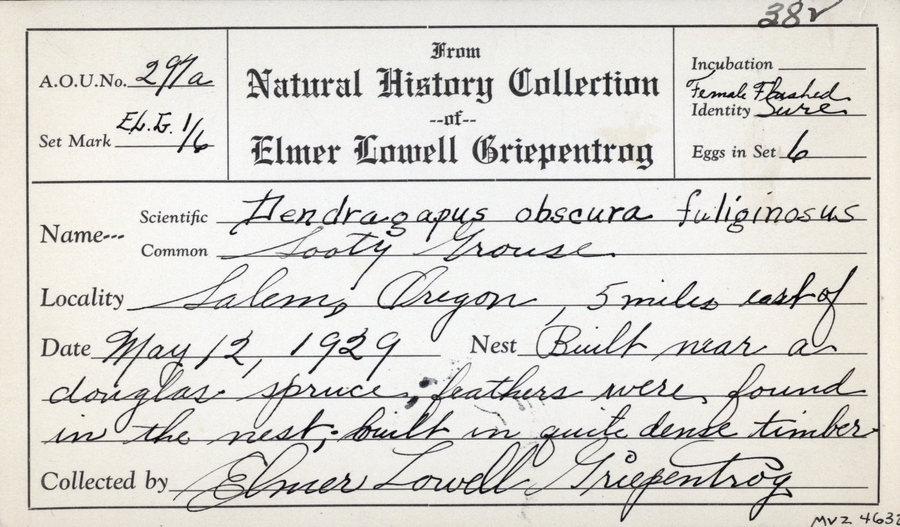 382
A.O.U.No. 297a
Set Mark E.L.G. 1/6
From
Natural History Collection
--of--
Elmer Lowell Griepentrog
Incubation
Female Flushed
Identity Sure
Eggs in Set 6
Name--- Scientific Dendragapus obscura fuliginosus
Common Sooty Grouse
Locality Salem, Oregon, 5 miles east of
Date May 12, 1929 Nest Built near a
douglas spruce; feathers were found
in the nest; built in quite dense timber
Collected by Elmer Lowell Griepentrog